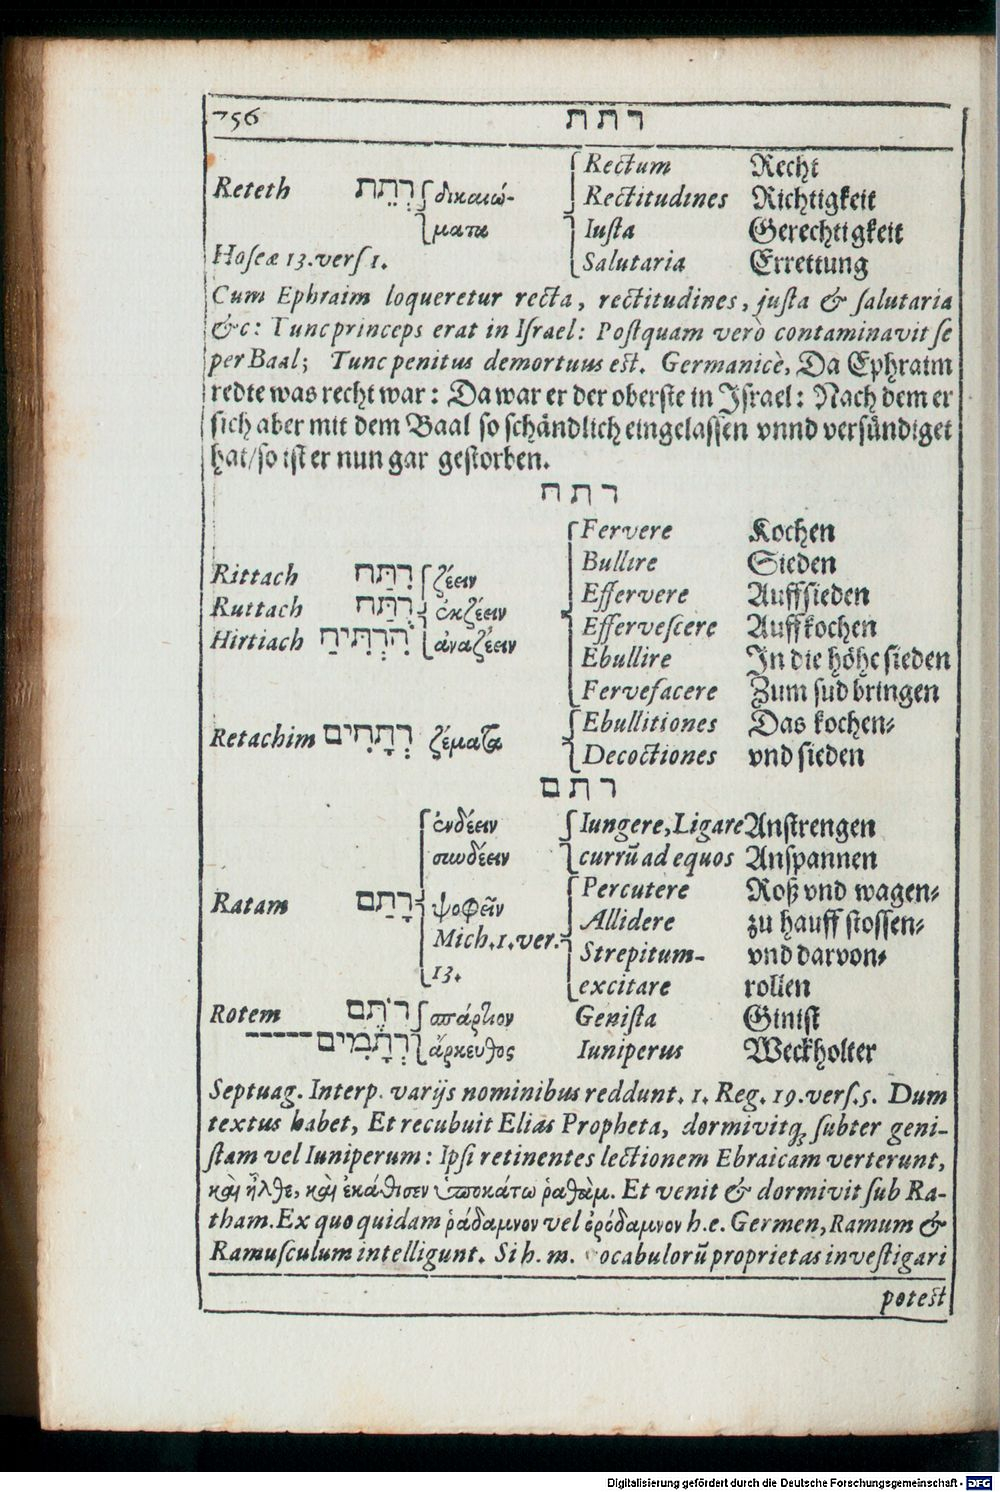 756 רתת
Rectum Recht
Reteth רְתֵת δικαιώ- Rectitudines Richtigkeit
ματα Iusta Gerechtigkeit
Hoseæ 13. vers 1. Salutaria Errettung
Cum Ephraim loqueretur recta, rectitudines, justa & salutaria
&c: Tunc princeps erat in Israel: Postquam verò contaminavit se
per Baal; Tunc penitus demortuus est. Germanicè, Da Ephraim
redte was recht war: Da war er der oberste in Israel: Nach dem er
sich aber mit dem Baal so schändlich eingelassen vnnd versündiget
hat/so ist er nun gar gestorben.
רתח
Fervere Kochen
Bullire Sieden
Rittach רִתַּח ζέειν Effervere Auffsieden
Ruttach רֻתַּח ἐκζέειν Effervescere Auffkochen
Hirtiach הִרְתִּיחַ ἀναζέειν Ebullire In die höhe sieden
Fervefacere Zum sud bringen
Retachim רְתָחִים ζέματα Ebullitiones Das kochen-
Decoctiones vnd sieden
רתם
ἐνδέειν Iungere, Ligare Anstrengen
συνδέειν currũ ad equos Anspannen
Ratam רָתַם ψοφεῖν Percutere Roß vnd wagen-
Allidere zu hauff stossen-
Mich. 1. ver. Strepitum- vnd darvon-
13. excitare rollen
Rotem רֹתֶם σπάρτιον Genista Ginist
רְתָמִים ἄρκευθος Iuniperus Weckholter
Septuag. Interp. varijs nominibus reddunt. 1. Reg. 19. vers. 5. Dum
textus habet, Et recubuit Elias Propheta, dormivitq; subter geni-
stam vel Iuniperum: Ipsi retinentes lectionem Ebraicam verterunt,
καὶ ἦλθε, καὶ ἐκάθισεν ὑποκάτω ῥαθὰμ. Et venit & dormivit sub Ra-
tham. Ex quo quidam ῥάδαμνον vel ὀρόδαμνον h.e. Germen, Ramum &
Ramusculum intelligunt. Si h. m. ocabulorũ proprietas investigari
potest
Digitalisierung gefördert durch die Deutsche Forschungsgemeinschaft - DFG